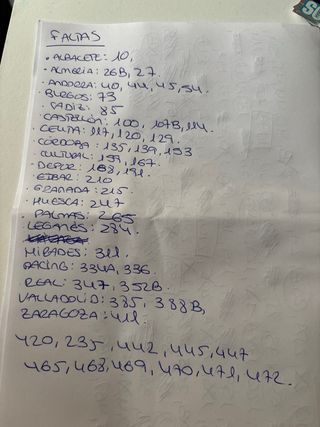 FALTAS
· ALBACETE: 10,
· ALMERIA: 26B, 27.
· ANDORRA: 40, 44, 45, 54.
· BURGOS: 73
· CADIZ: 85
CASTELLÓN: 100, 107B, 114.
· CEUTA: 117, 120, 129.
· CÓRDOBA: 135, 139, 153
· CULTURAL: 159, 167.
· DEPOR: 188, 191.
· EIBAR: 210
· GRANADA: 215.
· HUESCA: 247
· PALMAS: 265
LEGANÉS: 284.
MIRADES: 311.
RACING: 334A, 336.
REAL: 347, 352B.
VALLADOLID: 385, 388B,
ZARAGOZA: 411.
420, 235, 442, 445, 447
465, 468, 469, 470, 471, 472.